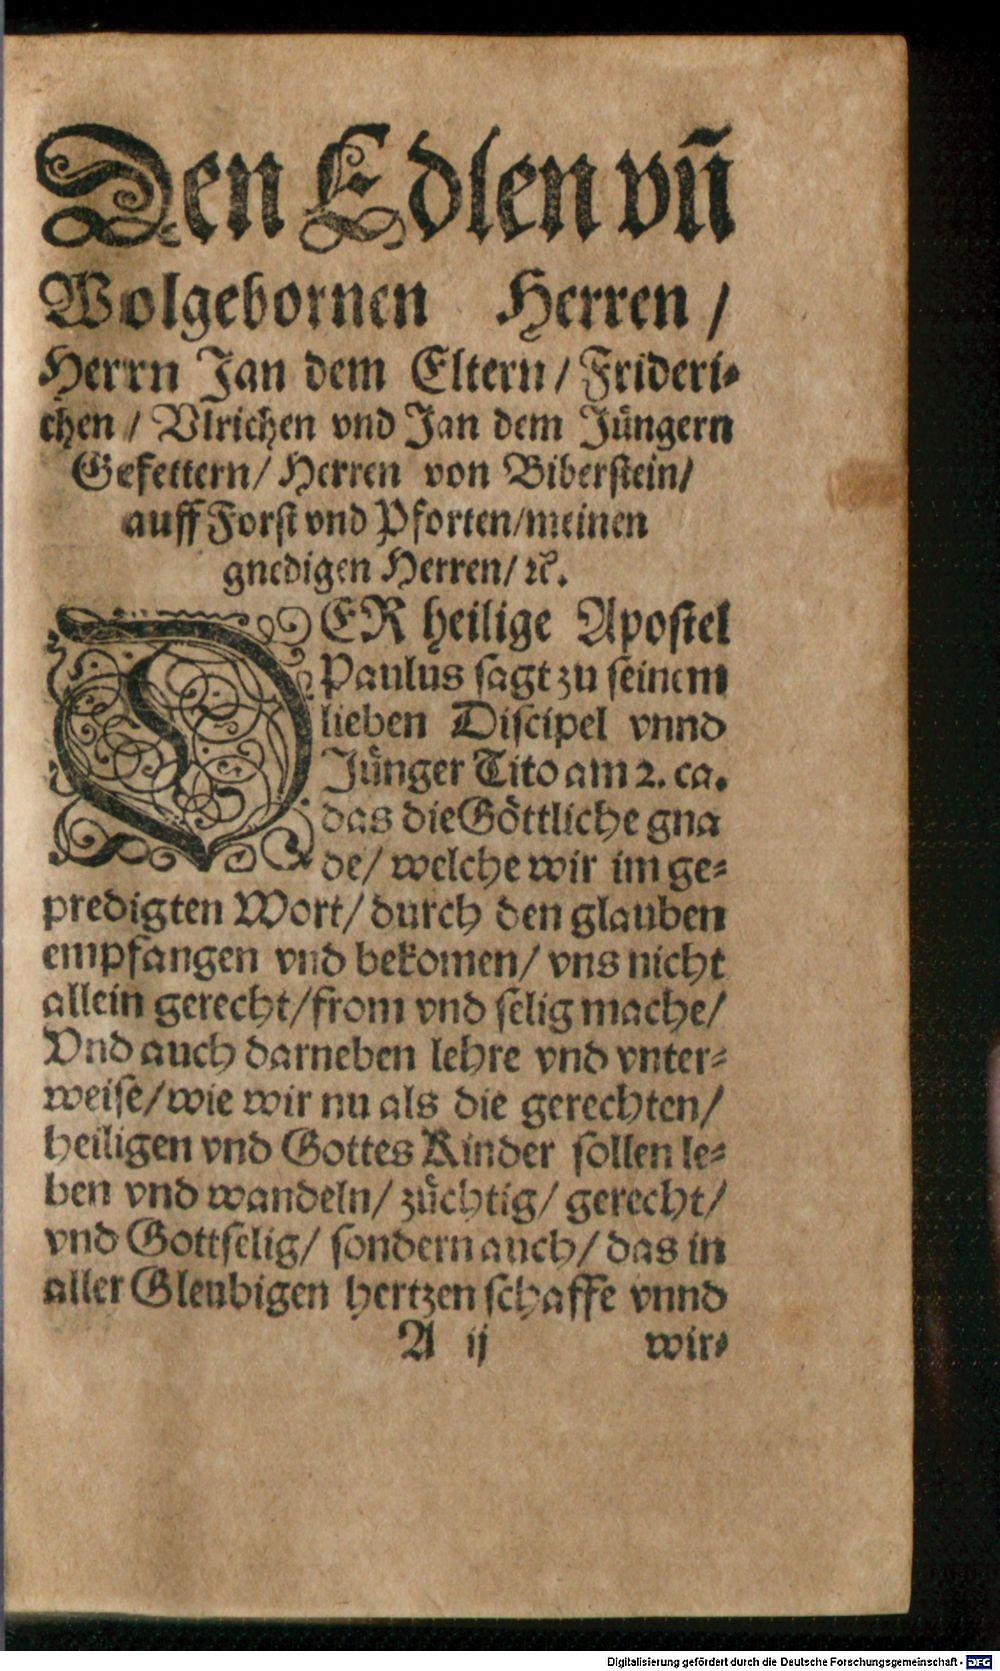 Den Edlen vñ
Wolgebornen Herren /
Herrn Jan dem Eltern / Frideri-
chen / Vlrichen vnd Jan dem Jüngern
Gefettern / Herren von Biberstein /
auff Forst vnd Pforten / meinen
gnedigen Herren / ꝛc.
DER heilige Apostel
Paulus sagt zu seinem
lieben Discipel vnnd
Jünger Tito am 2. ca.
das die Göttliche gna
de / welche wir im ge-
predigten Wort / durch den glauben
empfangen vnd bekomen / vns nicht
allein gerecht / from vnd selig mache /
Vnd auch darneben lehre vnd vnter-
weise / wie wir nu als die gerechten /
heiligen vnd Gottes Kinder sollen le-
ben vnd wandeln / züchtig / gerecht /
vnd Gottselig / sondern auch / das in
aller Gleubigen hertzen schaffe vnnd
A ij wir-
Digitalisierung gefördert durch die Deutsche Forschungsgemeinschaft - DFG